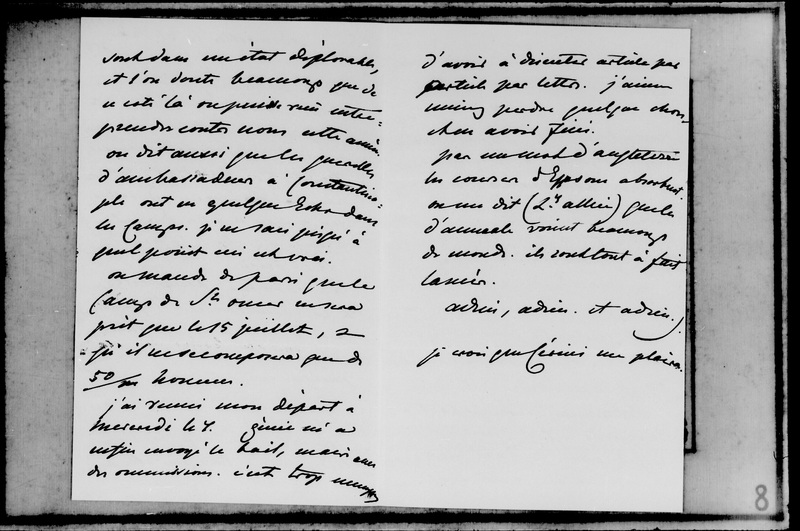 sont dans un état déplorable,
et l'on doute beaucoup que de
ce coté là on puisse rien entre-
prendre contre nous cette année.
on dit aussi que les querelles
d'ambassadeurs à Constantino-
ple ont eu quelque Echo dans
les Camps. je ne sais jusqu'à
quel point ceci est vrai.
on mande de paris que le
Camp de St omer ne sera
prêt que le 15 juillet, &
qu'il ne se composera que de
50/m hommes.
j'ai remis mon départ à
mercredi le 4. génie m'a
enfin envoyé le bail, mais avec
des ommissions. c'est trop ennuyeux
d'avoir à discuter article par
article par lettre. j'aime
mieux perdre quelque chose
et en avoir fini.
pas un mot d'angleterre
les courses d'Epsom absorbent.
on me dit (Lady allice) que les
d'aumale voient beaucoup
de monde. ils sont tout à fait
lancés.
adieu, adieu. et adieu.
je crois que Cérini me plaira.
8